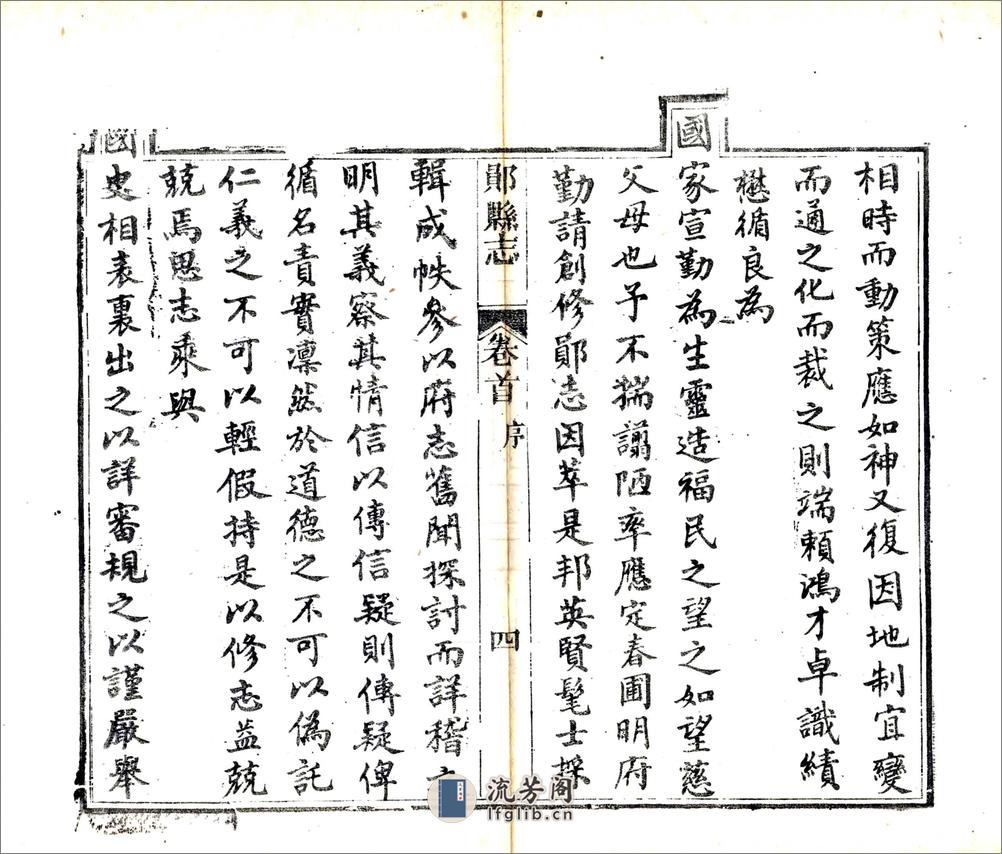 相時而動策應如神又復因地制宜變
而通之化而裁之則端賴鴻才卓識績
懋循良為
國家宣勤為生靈造福民之望之如望慈
父母也予不揣謭陋率應定春圃明府
勤請創修鄖志因萃是邦英賢髦士採
鄖縣志 卷首 序 四
輯成帙參以府志舊聞探討而詳稽之
明其義察其情信以傳信疑則傳疑俾
循名責實凜然於道德之不可以偽託
仁義之不可以輕假持是以修志益兢
兢焉思志乘與
國史相表裏出之以詳審規之以謹嚴舉
流芳阁
lfglib.cn